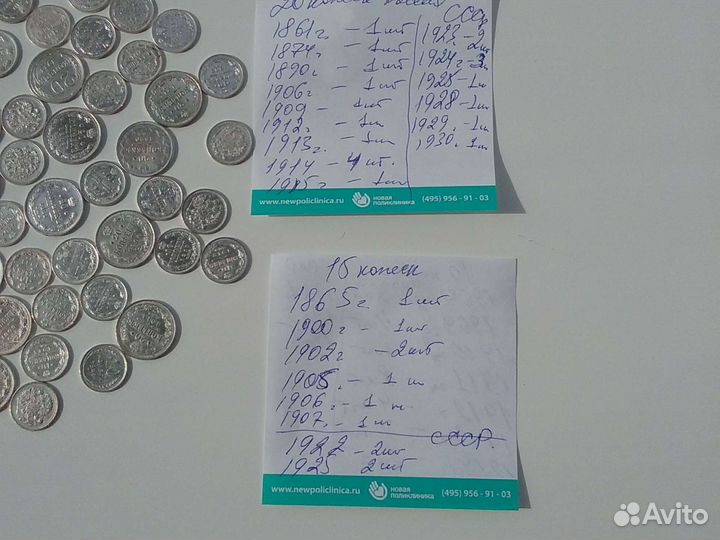 20 копеек
СССР
1861г. – 1 шт
1874г. – 1 шт
1890г. – 1 шт
1906г – 1 шт
1909 – 1 шт
1912г. – 1 ш
1913г. – 1 ш
1914 – 4 шт.
1915г – 1 шт
1923г. – 2
2 ш
1924г – 3 ш
1925 – 1 ш
1928 – 1 ш
1929. – 1 ш
1930. 1 ш
www.newpoliclinica.ru новая поликлиника (495) 956 - 91 - 03
15 копеек
1865г 1 шт
1900г – 1 шт
1902г – 2 шт
1905. – 1 ш
1906. – 1 ш
1907. – 1 ш
СССР.
1922 – 2 шт
1925 2 шт
www.newpoliclinica.ru новая поликлиника (495) 956 - 91 - 03
Avito